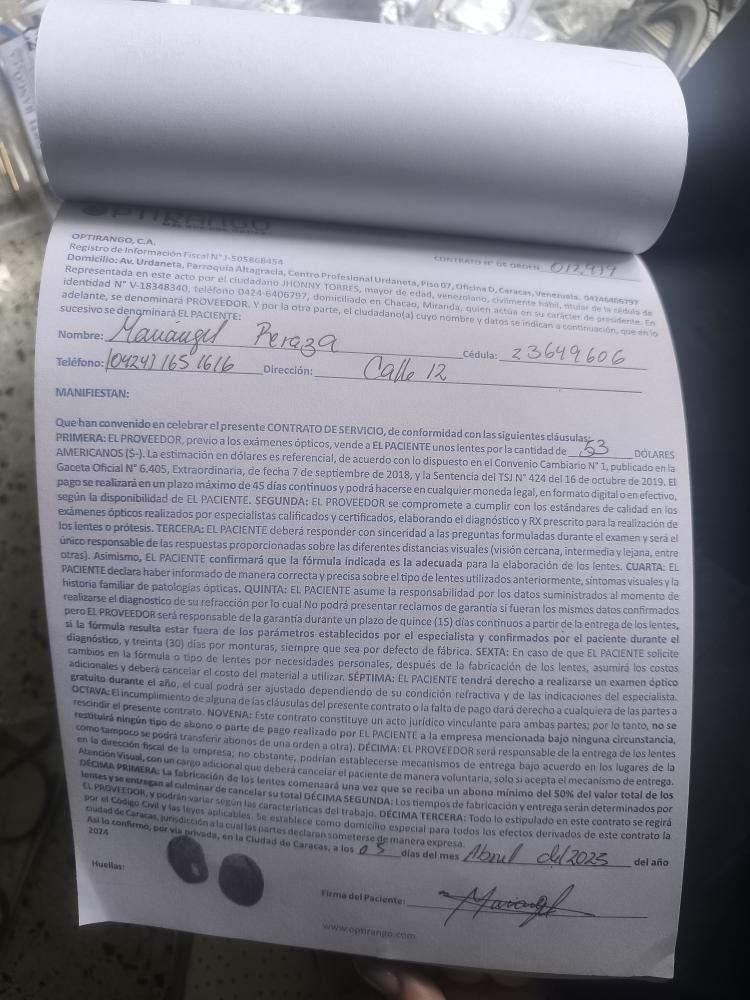 OPTIRANGO
OPTIRANGO, C.A.
Registro de Información Fiscal N° J-505868454
CONTRATO N° DE ORDEN
Domicilio: Av. Urdaneta, Parroquia Altagracia, Centro Profesional Urdaneta, Piso 07, Oficina D, Caracas, Venezuela. 04246406797
Representada en este acto por el ciudadano JHONNY TORRES, mayor de edad, venezolano, civilmente hábil, titular de la cédula de
identidad N° V-18348340, teléfono 0424-6406797, domiciliado en Chacao, Miranda, quien actúa en su carácter de presidente. En
adelante, se denominará PROVEEDOR. Y por la otra parte, el ciudadano(a) cuyo nombre y datos se indican a continuación, que en lo
sucesivo se denominará EL PACIENTE:
Nombre: Mariangel Peraza Cédula: 23649606
Teléfono: (0424) 165 1616 Dirección: Calle 12
MANIFIESTAN:
Que han convenido en celebrar el presente CONTRATO DE SERVICIO, de conformidad con las siguientes cláusulas:
PRIMERA: EL PROVEEDOR, previo a los exámenes ópticos, vende a EL PACIENTE unos lentes por la cantidad de 53 DÓLARES
AMERICANOS ($-). La estimación en dólares es referencial, de acuerdo con lo dispuesto en el Convenio Cambiario N° 1, publicado en la
Gaceta Oficial N° 6.405, Extraordinaria, de fecha 7 de septiembre de 2018, y la Sentencia del TSJ N° 424 del 16 de octubre de 2019. El
pago se realizará en un plazo máximo de 45 días continuos y podrá hacerse en cualquier moneda legal, en formato digital o en efectivo,
según la disponibilidad de EL PACIENTE. SEGUNDA: EL PROVEEDOR se compromete a cumplir con los estándares de calidad en los
exámenes ópticos realizados por especialistas calificados y certificados, elaborando el diagnóstico y RX prescrito para la realización de
los lentes o prótesis. TERCERA: EL PACIENTE deberá responder con sinceridad a las preguntas formuladas durante el examen y será el
único responsable de las respuestas proporcionadas sobre las diferentes distancias visuales (visión cercana, intermedia y lejana, entre
otras). Asimismo, EL PACIENTE confirmará que la fórmula indicada es la adecuada para la elaboración de los lentes. CUARTA: EL
PACIENTE declara haber informado de manera correcta y precisa sobre el tipo de lentes utilizados anteriormente, síntomas visuales y la
historia familiar de patologías ópticas. QUINTA: EL PACIENTE asume la responsabilidad por los datos suministrados al momento de
realizarse el diagnostico de su refracción por lo cual No podrá presentar reclamos de garantía si fueran los mismos datos confirmados
pero EL PROVEEDOR será responsable de la garantía durante un plazo de quince (15) días continuos a partir de la entrega de los lentes,
si la fórmula resulta estar fuera de los parámetros establecidos por el especialista y confirmados por el paciente durante el
diagnóstico, y treinta (30) días por monturas, siempre que sea por defecto de fábrica. SEXTA: En caso de que EL PACIENTE solicite
cambios en la fórmula o tipo de lentes por necesidades personales, después de la fabricación de los lentes, asumirá los costos
adicionales y deberá cancelar el costo del material a utilizar. SÉPTIMA: EL PACIENTE tendrá derecho a realizarse un examen óptico
gratuito durante el año, el cual podrá ser ajustado dependiendo de su condición refractiva y de las indicaciones del especialista.
OCTAVA: El incumplimiento de alguna de las cláusulas del presente contrato o la falta de pago dará derecho a cualquiera de las partes a
rescindir el presente contrato. NOVENA: Este contrato constituye un acto jurídico vinculante para ambas partes; por lo tanto, no se
restituirá ningún tipo de abono o parte de pago realizado por EL PACIENTE a la empresa mencionada bajo ninguna circunstancia,
como tampoco se podrá transferir abonos de una orden a otra). DÉCIMA: EL PROVEEDOR será responsable de la entrega de los lentes
en la dirección fiscal de la empresa; no obstante, podrían establecerse mecanismos de entrega bajo acuerdo en los lugares de la
Atención Visual, con un cargo adicional que deberá cancelar el paciente de manera voluntaria, solo si acepta el mecanismo de entrega.
DÉCIMA PRIMERA: La fabricación de los lentes comenzará una vez que se reciba un abono mínimo del 50% del valor total de los
lentes y se entregan al culminar de cancelar su total DÉCIMA SEGUNDA: Los tiempos de fabricación y entrega serán determinados por
EL PROVEEDOR, y podrán variar según las características del trabajo. DÉCIMA TERCERA: Todo lo estipulado en este contrato se regirá
por el Código Civil y las leyes aplicables. Se establece como domicilio especial para todos los efectos derivados de este contrato la
ciudad de Caracas, jurisdicción a la cual las partes declaran someterse de manera expresa.
Así lo confirmo, por vía privada, en la Ciudad de Caracas, a los 05 días del mes Abril del/2025 del año
2024
Huellas:
Firma del Paciente: Mariangel
www.optirango.com